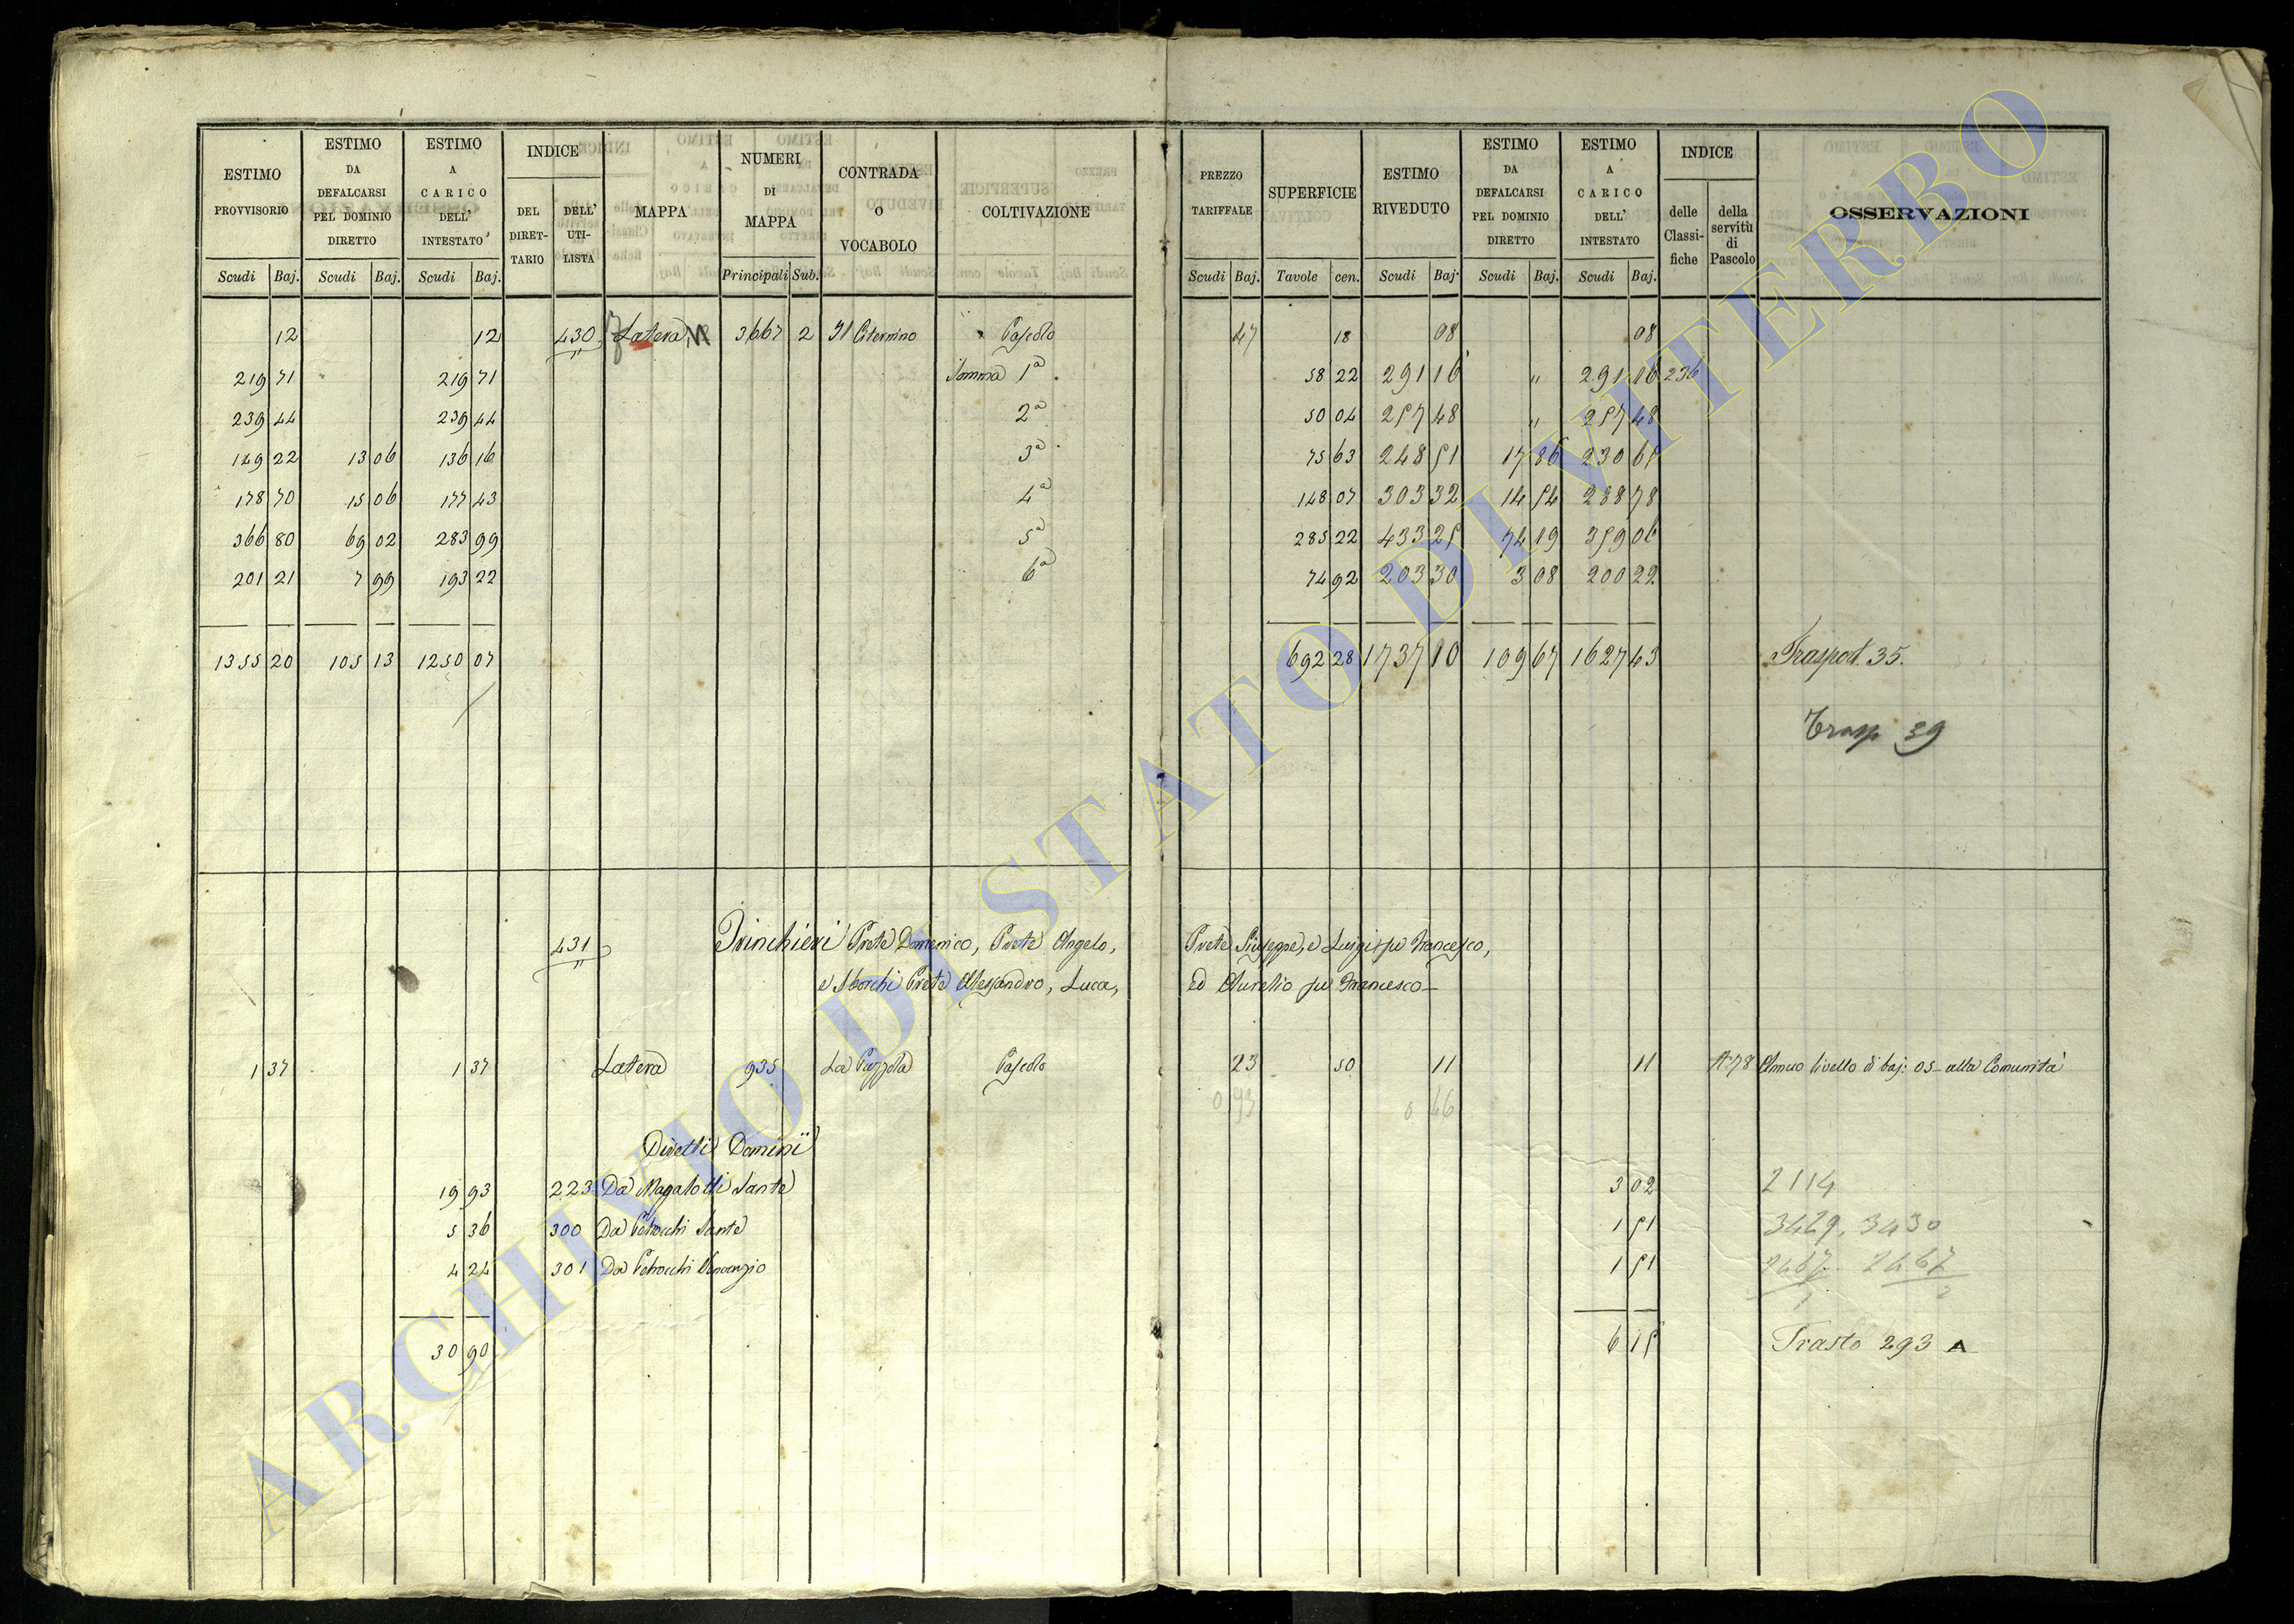 ESTIMO PROVVISORIO Scudi Baj. ESTIMO DA DEFALCARSI PEL DOMINIO DIRETTO Scudi Baj. ESTIMO A CARICO DELL' INTESTATO Scudi Baj. INDICE DEL DIRET-TARIO DELL' UTI-LISTA MAPPA NUMERI DI MAPPA Principali Sub. CONTRADA O VOCABOLO COLTIVAZIONE PREZZO TARIFFALE Scudi Baj. SUPERFICIE Tavole cen. ESTIMO RIVEDUTO Scudi Baj. ESTIMO DA DEFALCARSI PEL DOMINIO DIRETTO Scudi Baj. ESTIMO A CARICO DELL' INTESTATO Scudi Baj. INDICE delle Classi-fiche della servitù di Pascolo OSSERVAZIONI
12 12 430 Latera 3667 2 Il Citernino Pascolo 47 18 08 08
219 71 219 71 Somma 1a 58 22 291 16 " 291 16 236
239 44 239 44 2a 50 04 257 48 " 257 48
149 22 13 06 136 16 3a 75 63 248 51 17 86 230 65
178 70 15 06 177 43 4a 148 07 303 32 14 54 288 78
366 80 69 02 283 99 5a 285 22 433 25 74 19 359 06
201 21 7 99 193 22 6a 74 92 203 30 3 08 200 22
1355 20 105 13 1250 07 692 28 1737 10 109 67 1627 43 Trasport. 35.
Trasp 39
431 Princhieri Prete Domenico, Prete Angelo, Prete Giuseppe, e Luigi fu Francesco,
e Storchi Prete Alessandro, Luca, ed Aurelio fu Francesco
1 37 1 37 Latera 935 La Pazzola Pascolo 23 50 11 11 A.78 Annuo livello di baj: 05 alla Comunità
0 93 0 46
Diretti Dominii
19 93 223 Da Magalotti Sante 3 02 2114
5 36 300 Da Petrocchi Sante 1 51 3429. 3430
4 24 301 Da Petrocchi Venanzio 1 51 2467 2467
30 90 6 15 Trasto 293 A
ARCHIVIO DI STATO DI VITERBO